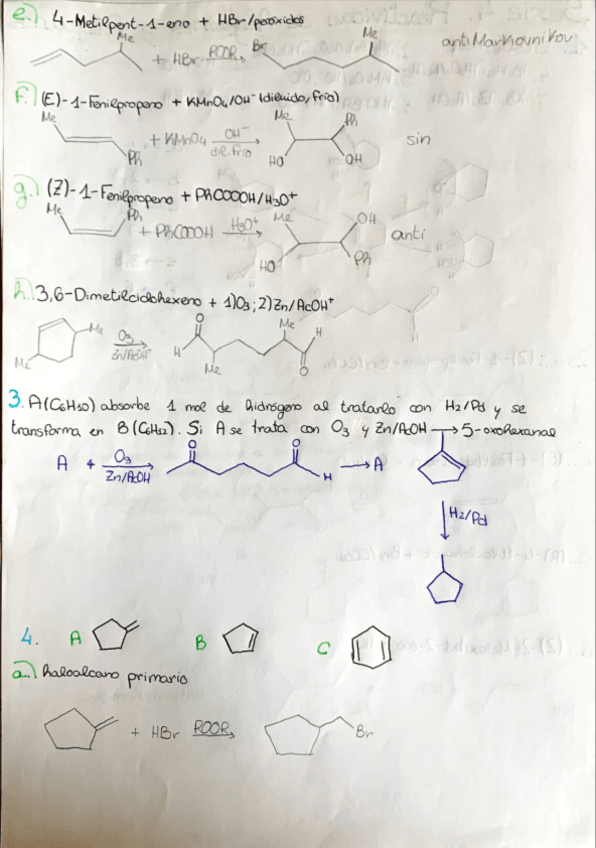 e.) 4-Metilpent-1-eno + HBr/peróxidos
Me + HBr ROOR, Br Me antiMarkovnikov
f.) (E)-1-Fenilpropeno + KMnO4/OH⁻ (diluido, frío)
Me Ph + KMnO4 OH⁻ dil frío Me Ph HO OH sin
g.) (Z)-1-Fenilpropeno + PhCOOOH/H3O⁺
Me Ph + PhCOOOH H3O⁺ Me OH HO Ph anti
h.) 3,6-Dimetilciclohexeno + 1)O3; 2)Zn/AcOH⁺
Me Me O3 Zn/AcOH⁺ O H Me Me H O
3. A(C6H10) absorbe 1 mol de hidrógeno al tratarlo con H2/Pd y se
transforma en B(C6H12). Si A se trata con O3 y Zn/AcOH → 5-oxohexanal
A + O3 Zn/AcOH O O H → A
H2/Pd
4. A B C
a.) haloalcano primario
+ HBr ROOR, Br